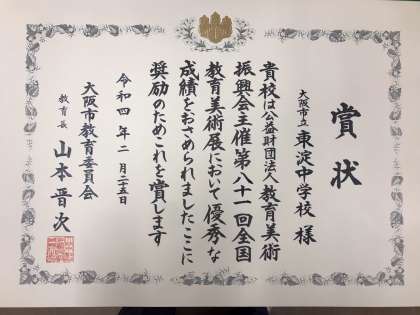 賞状
大阪市立東淀中学校 様
貴校は公益財団法人教育美術
振興会主催第八十一回全国
教育美術展において優秀な
成績をおさめられましたここに
奨励のためこれを賞します
令和四年二月二十五日
大阪市教育委員会
教育長 山本晋次